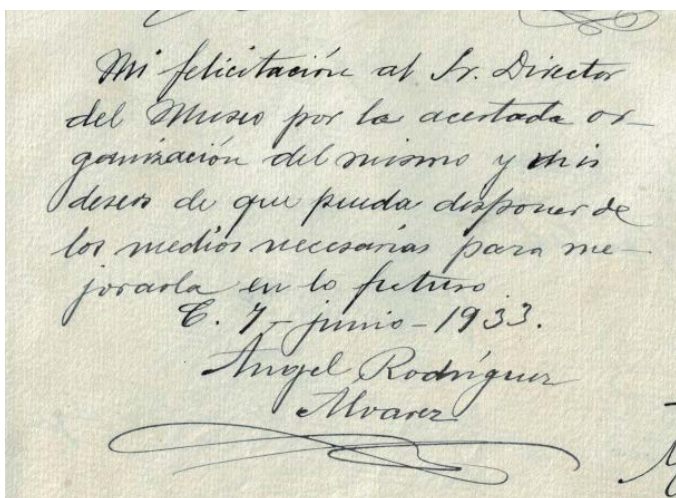 Mi felicitación al Sr. Director
del Museo por la acertada or-
ganización del mismo y mis
deseos de que pueda disponer de
los medios necesarios para me-
jorarla en lo futuro.
C. 7-junio-1933.
Angel Rodríguez
Alvarez